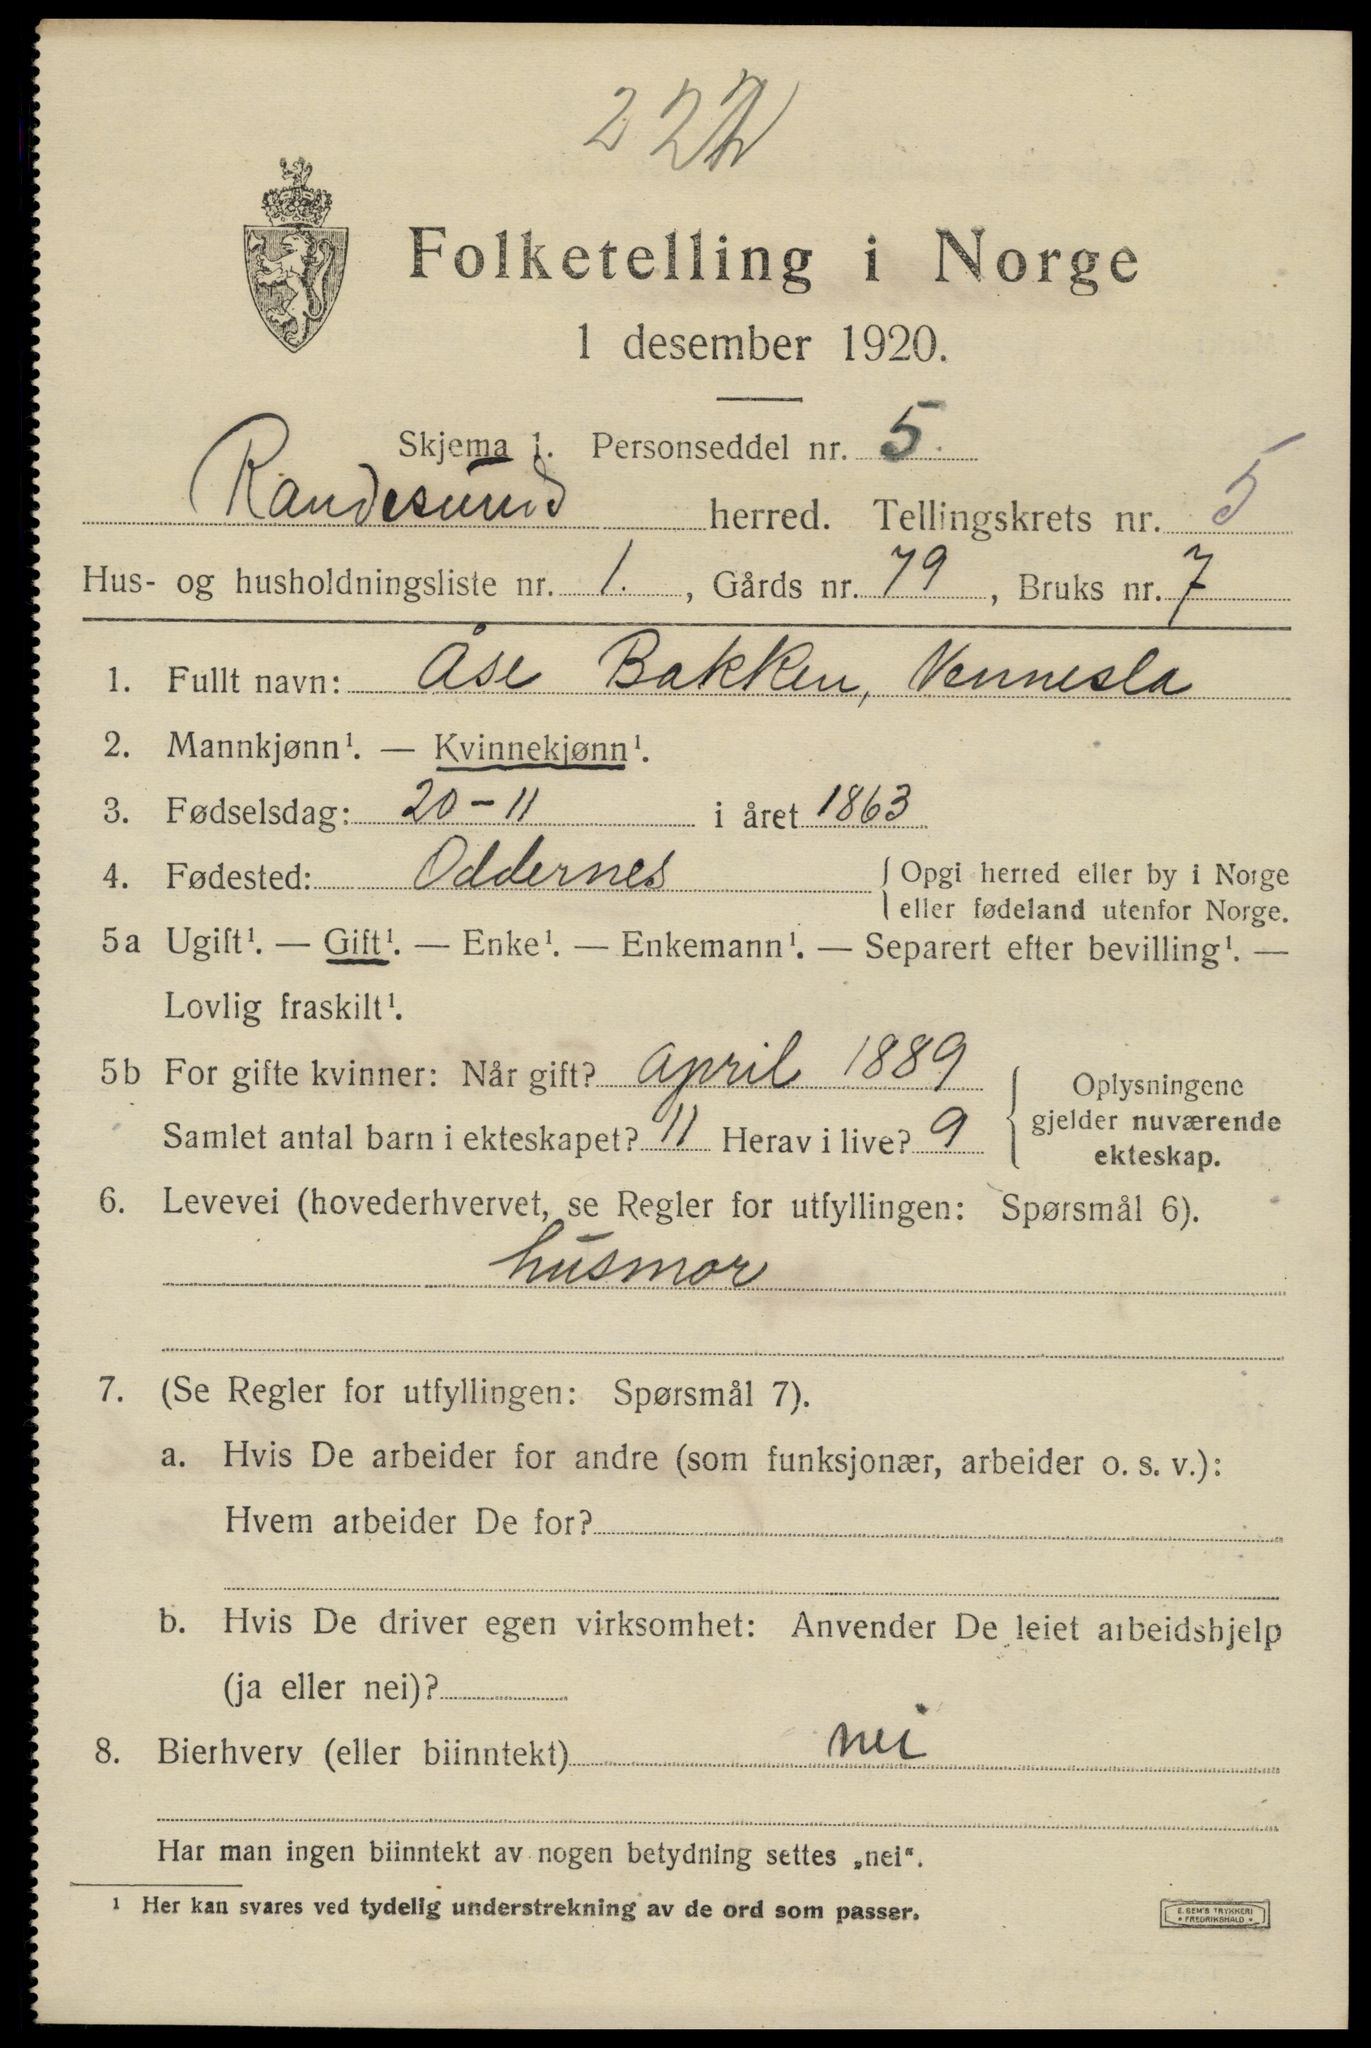 222
Folketelling i Norge
1 desember 1920.
Skjema 1. Personseddel nr. 5.
Randesund herred. Tellingskrets nr. 5
Hus- og husholdningsliste nr. 1., Gårds nr. 79, Bruks nr. 7
1. Fullt navn: Åse Bakken, Vennesla
2. Mannkjønn¹. — Kvinnekjønn¹.
3. Fødselsdag: 20-11 i året 1863
4. Fødested: Oddernes { Opgi herred eller by i Norge
eller fødeland utenfor Norge.
5a Ugift¹. — Gift¹. — Enke¹. — Enkemann¹. — Separert efter bevilling¹. —
Lovlig fraskilt¹.
5b For gifte kvinner: Når gift? April 1889
Samlet antal barn i ekteskapet? 11 Herav i live? 9
Oplysningene
gjelder nuværende
ekteskap.
6. Levevei (hovederhvervet, se Regler for utfyllingen: Spørsmål 6).
husmor
7. (Se Regler for utfyllingen: Spørsmål 7).
a. Hvis De arbeider for andre (som funksjonær, arbeider o. s. v.):
Hvem arbeider De for?
b. Hvis De driver egen virksomhet: Anvender De leiet arbeidshjelp
(ja eller nei)?
8. Bierhverv (eller biinntekt) nei
Har man ingen biinntekt av nogen betydning settes „nei“.
¹ Her kan svares ved tydelig understrekning av de ord som passer.
E. SEM'S TRYKKERI
* FREDRIKSHALD *